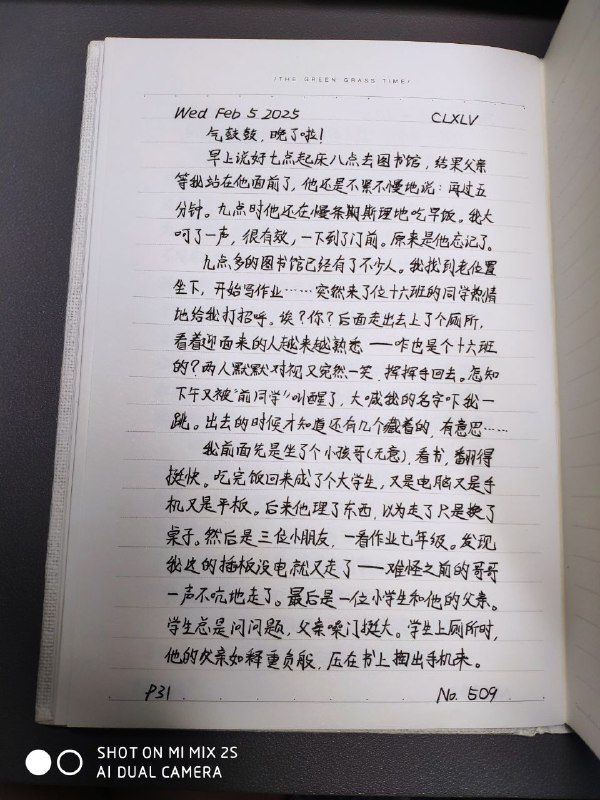 /THE GREEN GRASS TIME/
Wed Feb 5 2025 CLXLV
气鼓鼓，晚了啦！
早上说好七点起床八点去图书馆，结果父亲
等我站在他面前了，他还是不累不慢地说：再过五
分钟。九点时他还在慢条期斯理地吃早饭。我大
呵了一声，很有效，一下到了门前。原来是他忘记了。
九点多的图书馆已经有了不少人。我找到老位置
坐下，开始写作业……突然来了位十六班的同学热情
地给我打招呼。诶？你？后面走出去上了个厕所，
看着迎面来的人越来越熟悉——咋也是个十六班
的？两人默默对视又突然一笑，挥挥手回去。怎知
下午又被“前同学”叫醒了，大喊我的名字吓我一
跳。出去的时候才知道还有几个藏着的，有意思……
我前面先是坐了个小孩哥（无意），看书，翻得
挺快。吃完饭回来成了个大学生，又是电脑又是手
机又是平板。后来他理了东西，以为走了只是换了
桌子。然后是三位小朋友，一看作业七年级。发现
我这的插板没电就又走了——难怪之前的哥哥
一声不吭地走了。最后是一位小学生和他的父亲。
学生总是问问题，父亲嗓门挺大。学生上厕所时，
他的父亲如释重负般，压在书上掏出手机来。
P31 No. 509
SHOT ON MI MIX 2S
AI DUAL CAMERA